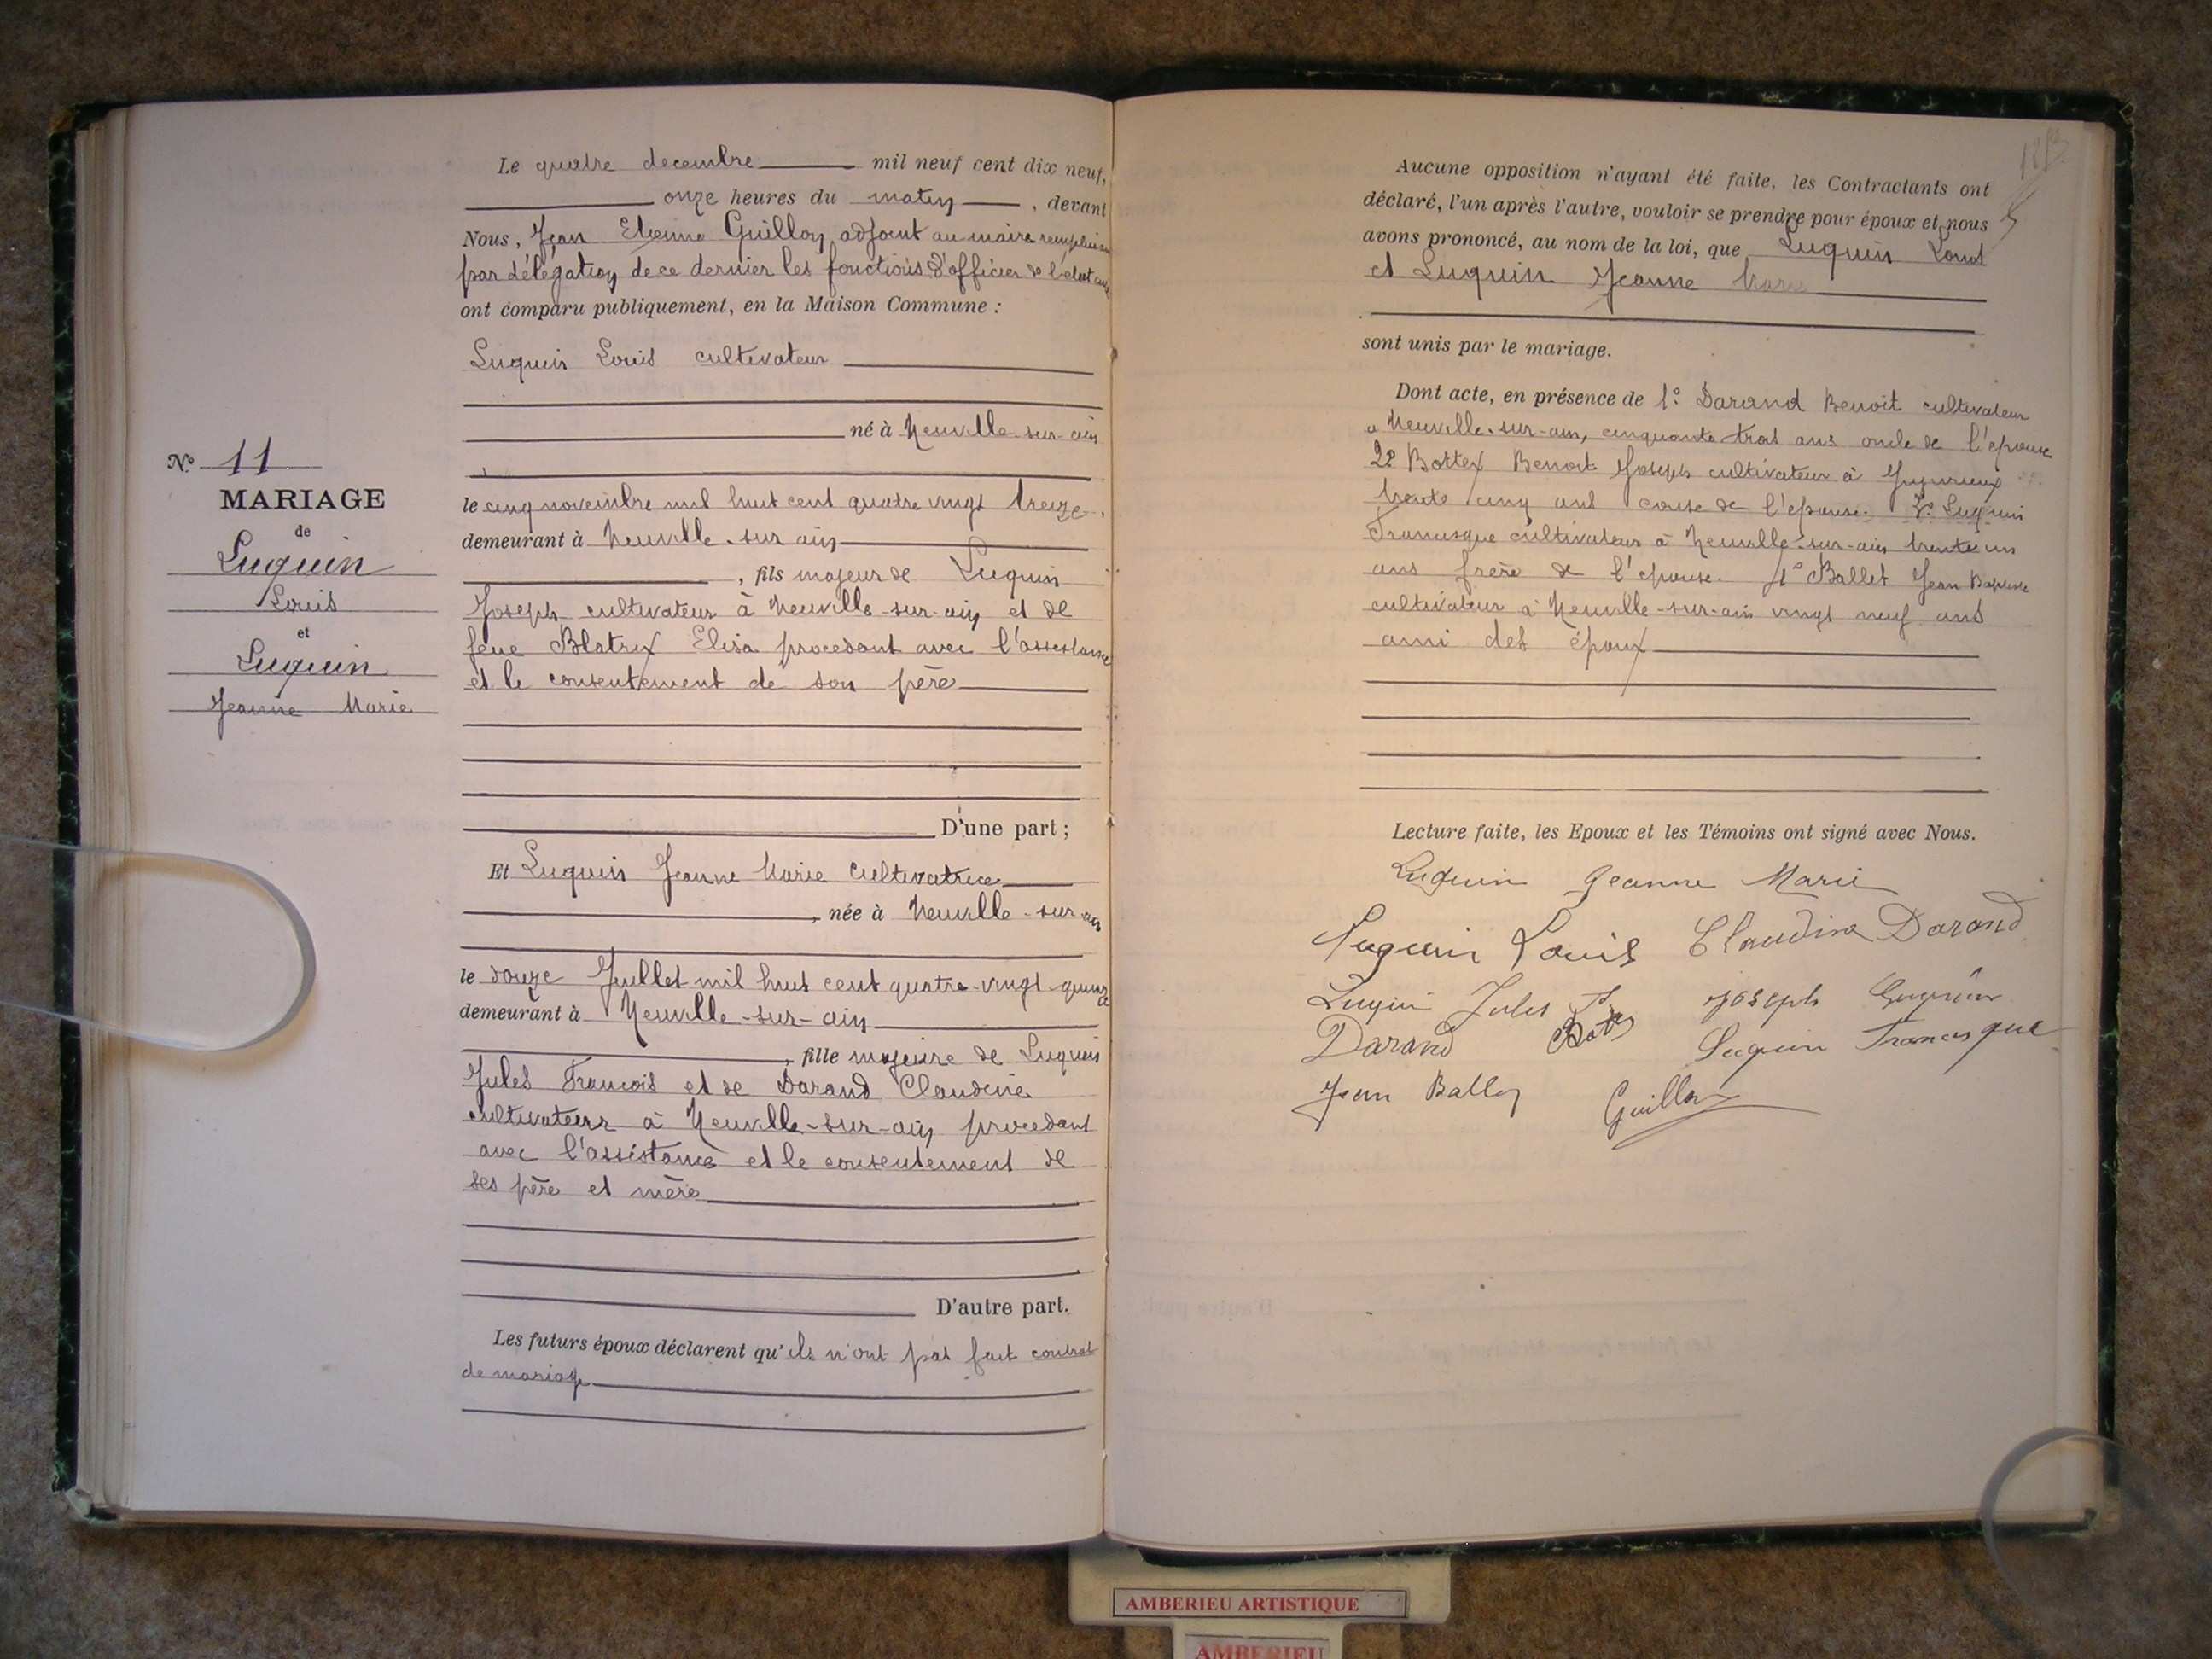 Le quatre decembre mil neuf cent dix neuf,
onze heures du matin, devant
Nous, Jean Etienne Guillon adjoint au maire remplissant
par délégation de ce dernier les fonctions d'officier de l'état civil
ont comparu publiquement, en la Maison Commune :
Luquin Louis cultivateur
né à Neuville-sur-ain
le cinq novembre mil huit cent quatre vingt treize,
demeurant à Neuville-sur ain
, fils majeur de Luquin
Joseph cultivateur à Neuville-sur-ain et de
feue Blatrix Elisa procedant avec l'assistance
et le consentement de son père
D'une part ;
N° 11
MARIAGE
de
Luquin
Louis
et
Luquin
Jeanne Marie
Et Luquin Jeanne Marie Cultivatrice
, née à Neuville-sur-ain
le douze Juillet mil huit cent quatre-vingt-quinze
demeurant à Neuville-sur-ain
, fille majeure de Luquin
Jules François et de Darand Claudine
cultivateurs à Neuville-sur-ain procedant
avec l'assistance et le consentement de
ses père et mère
D'autre part.
Les futurs époux déclarent qu'ils n'ont pas fait contrat
de mariage
Aucune opposition n'ayant été faite, les Contractants ont
déclaré, l'un après l'autre, vouloir se prendre pour époux et nous
avons prononcé, au nom de la loi, que Luquin Louis
et Luquin Jeanne Marie
sont unis par le mariage.
Dont acte, en présence de 1° Darand Benoit cultivateur
a Neuville-sur-ain, cinquante trois ans oncle de l'epouse
2° Bottex Benoit Joseph cultivateur à Jujurieux
trente cinq ans de l'epouse. 3° Luquin
Francisque cultivateur à Neuville-sur-ain trente un
ans frère de l'epouse. 4° Ballet Jean Baptiste
cultivateur à Neuville-sur-ain vingt neuf ans
ami des époux
Lecture faite, les Epoux et les Témoins ont signé avec Nous.
Luquin Jeanne Marie
Luquin Louis Claudine Darand
Luquin Jules Joseph Luquin
Darand Luquin Francisque
Jean Guillon
AMBERIEU ARTISTIQUE
AMBERIEU